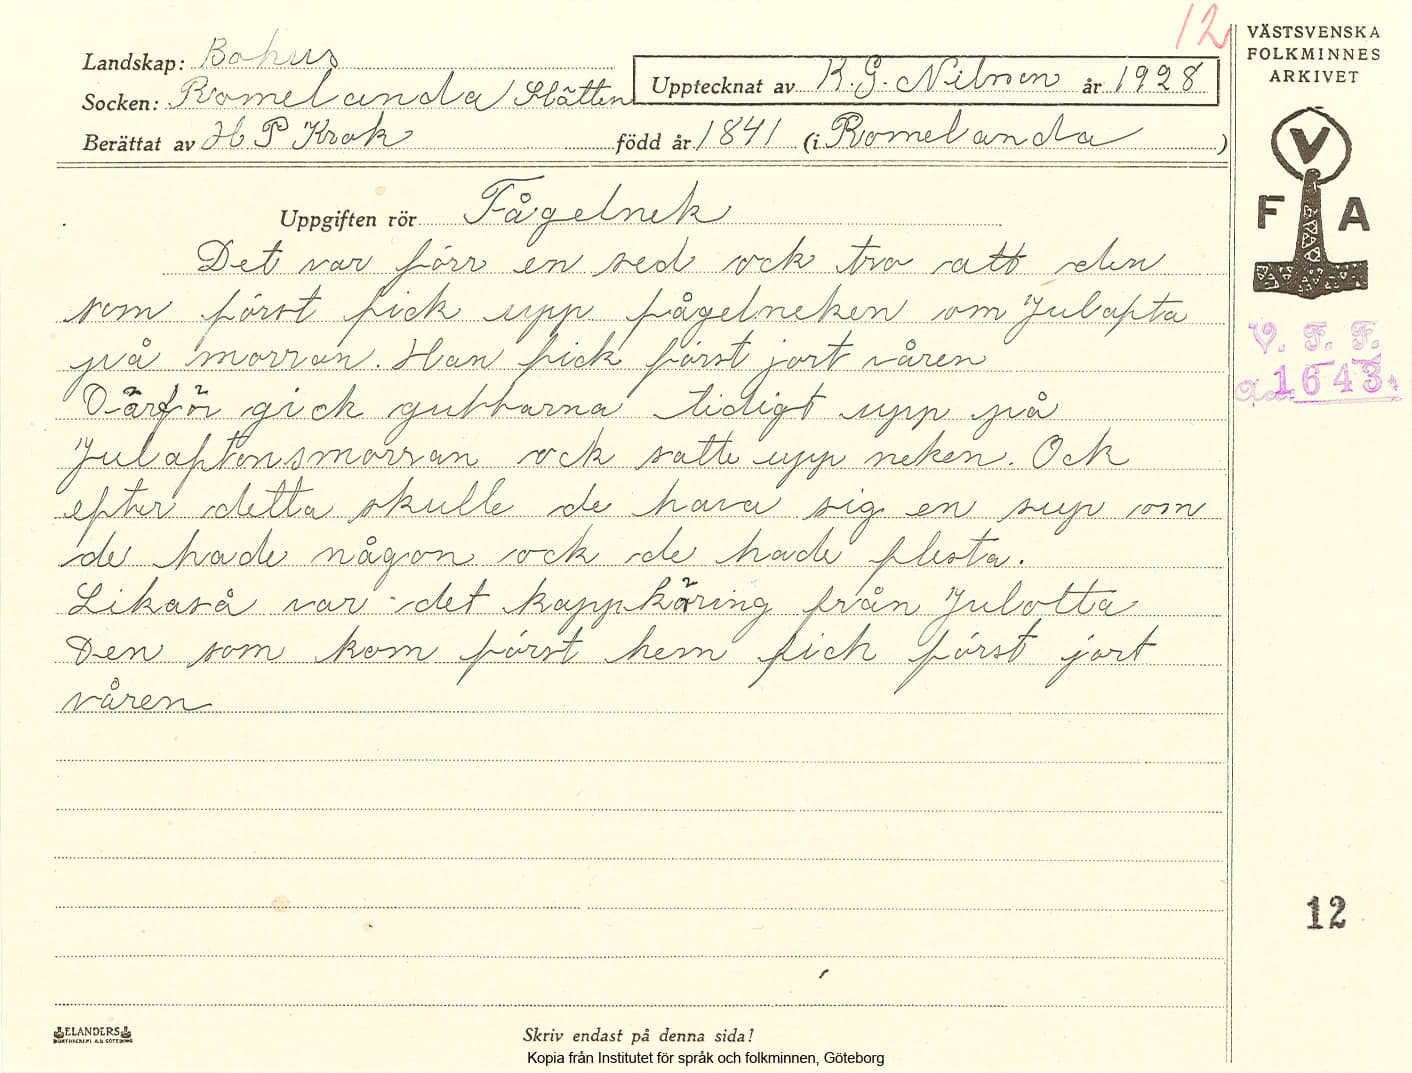 12
VÄSTSVENSKA
FOLKMINNES
ARKIVET
Landskap: Bohus
Socken: Romelanda Slätten
Upptecknat av K. G. Nilson år 1928
Berättat av H P Krok född år 1841 (i Romelanda)
V
F A
Uppgiften rör Fågelnek
Det var förr en sed ock tro att den
som först fick upp fågelneken om Julafta
på morran. Han fick först jort våren
Därför gick gubbarna tidigt upp på
Julaftonsmorran ock satte upp neken. Ock
efter detta skulle de hava sig en sup om
de hade någon ock de hade flesta.
Likaså var det kappköring från Julotta
Den som kom först hem fick först jort
våren
V. F. F.
1643
12
ELANDERS
BOKTRYCKERI A.B. GÖTEBORG
Skriv endast på denna sida!
Kopia från Institutet för språk och folkminnen, Göteborg